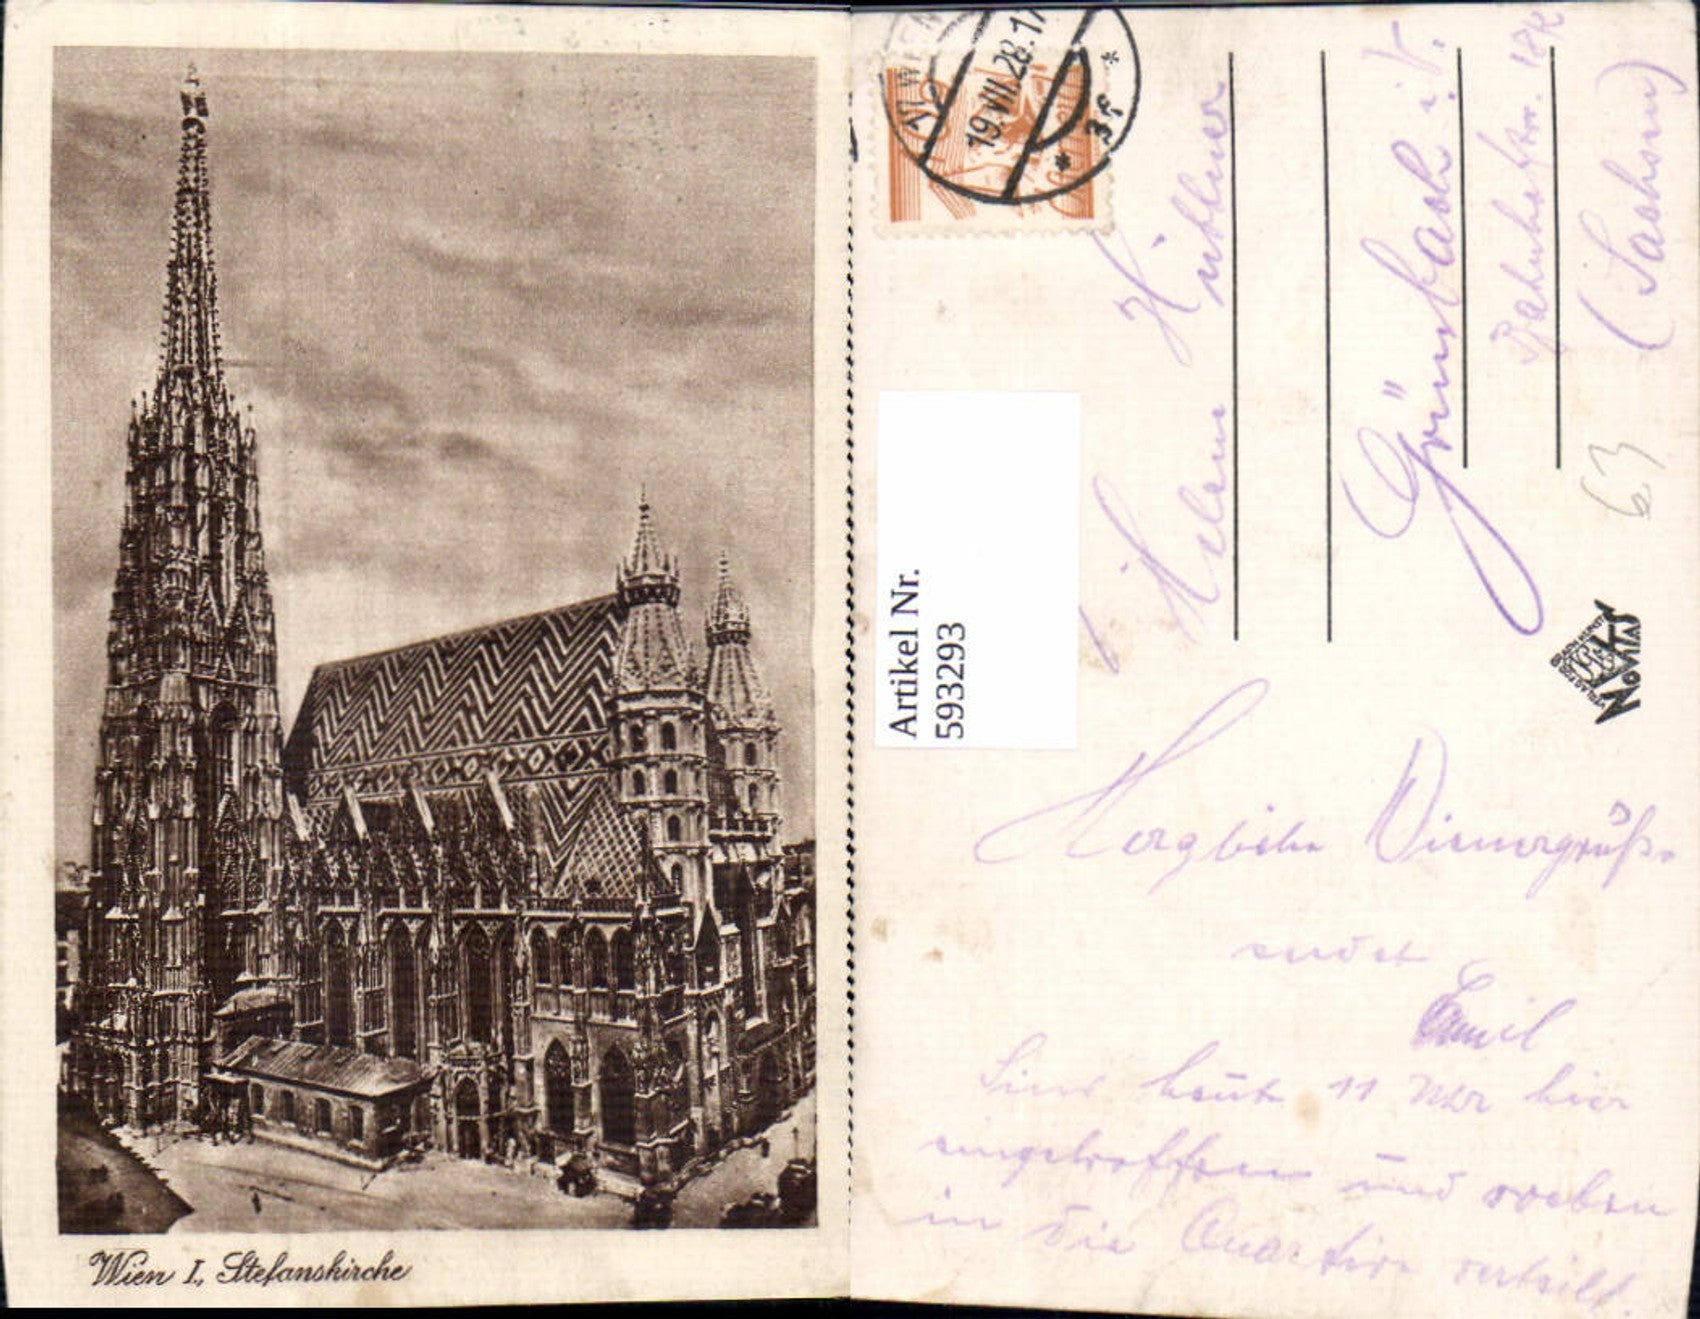 Wien I., Stefanskirche
19.VII.28.17
* 3f *
Artikel Nr.
5932293
Helene Hüttner
Grünbach i. V.
Bahnhofstr.
(Sachsen)
63
NOVITAS
Herzliche Wienergrüße
sendet
Emil
Sind heute 11 Uhr hier
eingetroffen und werden
in die Quartier verteilt.